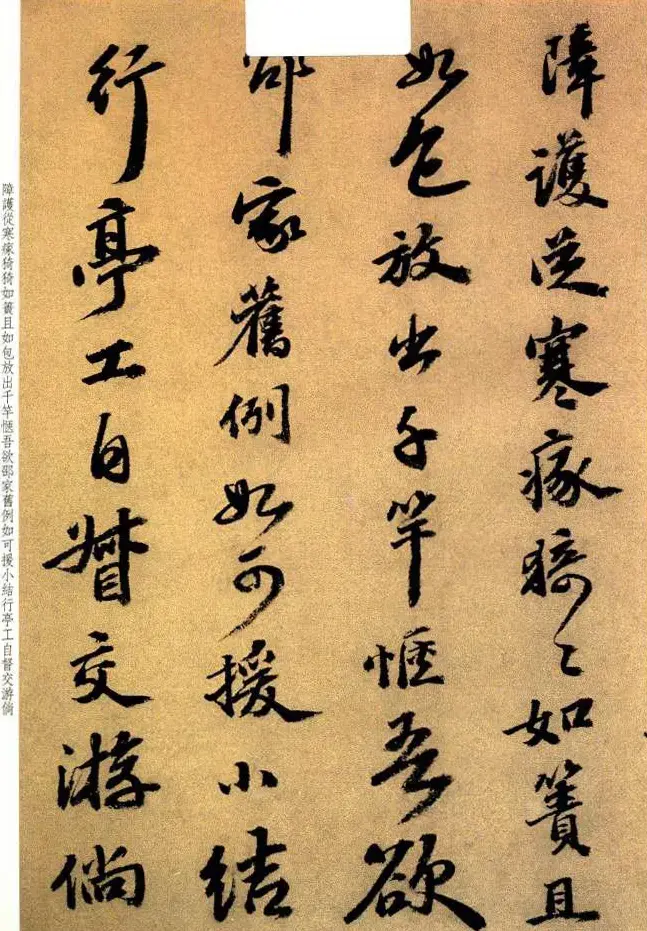 障護從寒瘃猗〻如簀且
如包放出千竿愜吾欲
邵家舊例如可援小結
行亭工自督交游倘
障護從寒瘃猗猗如簀且如包放出千竿愜吾欲邵家舊例如可援小結行亭工自督交游倘